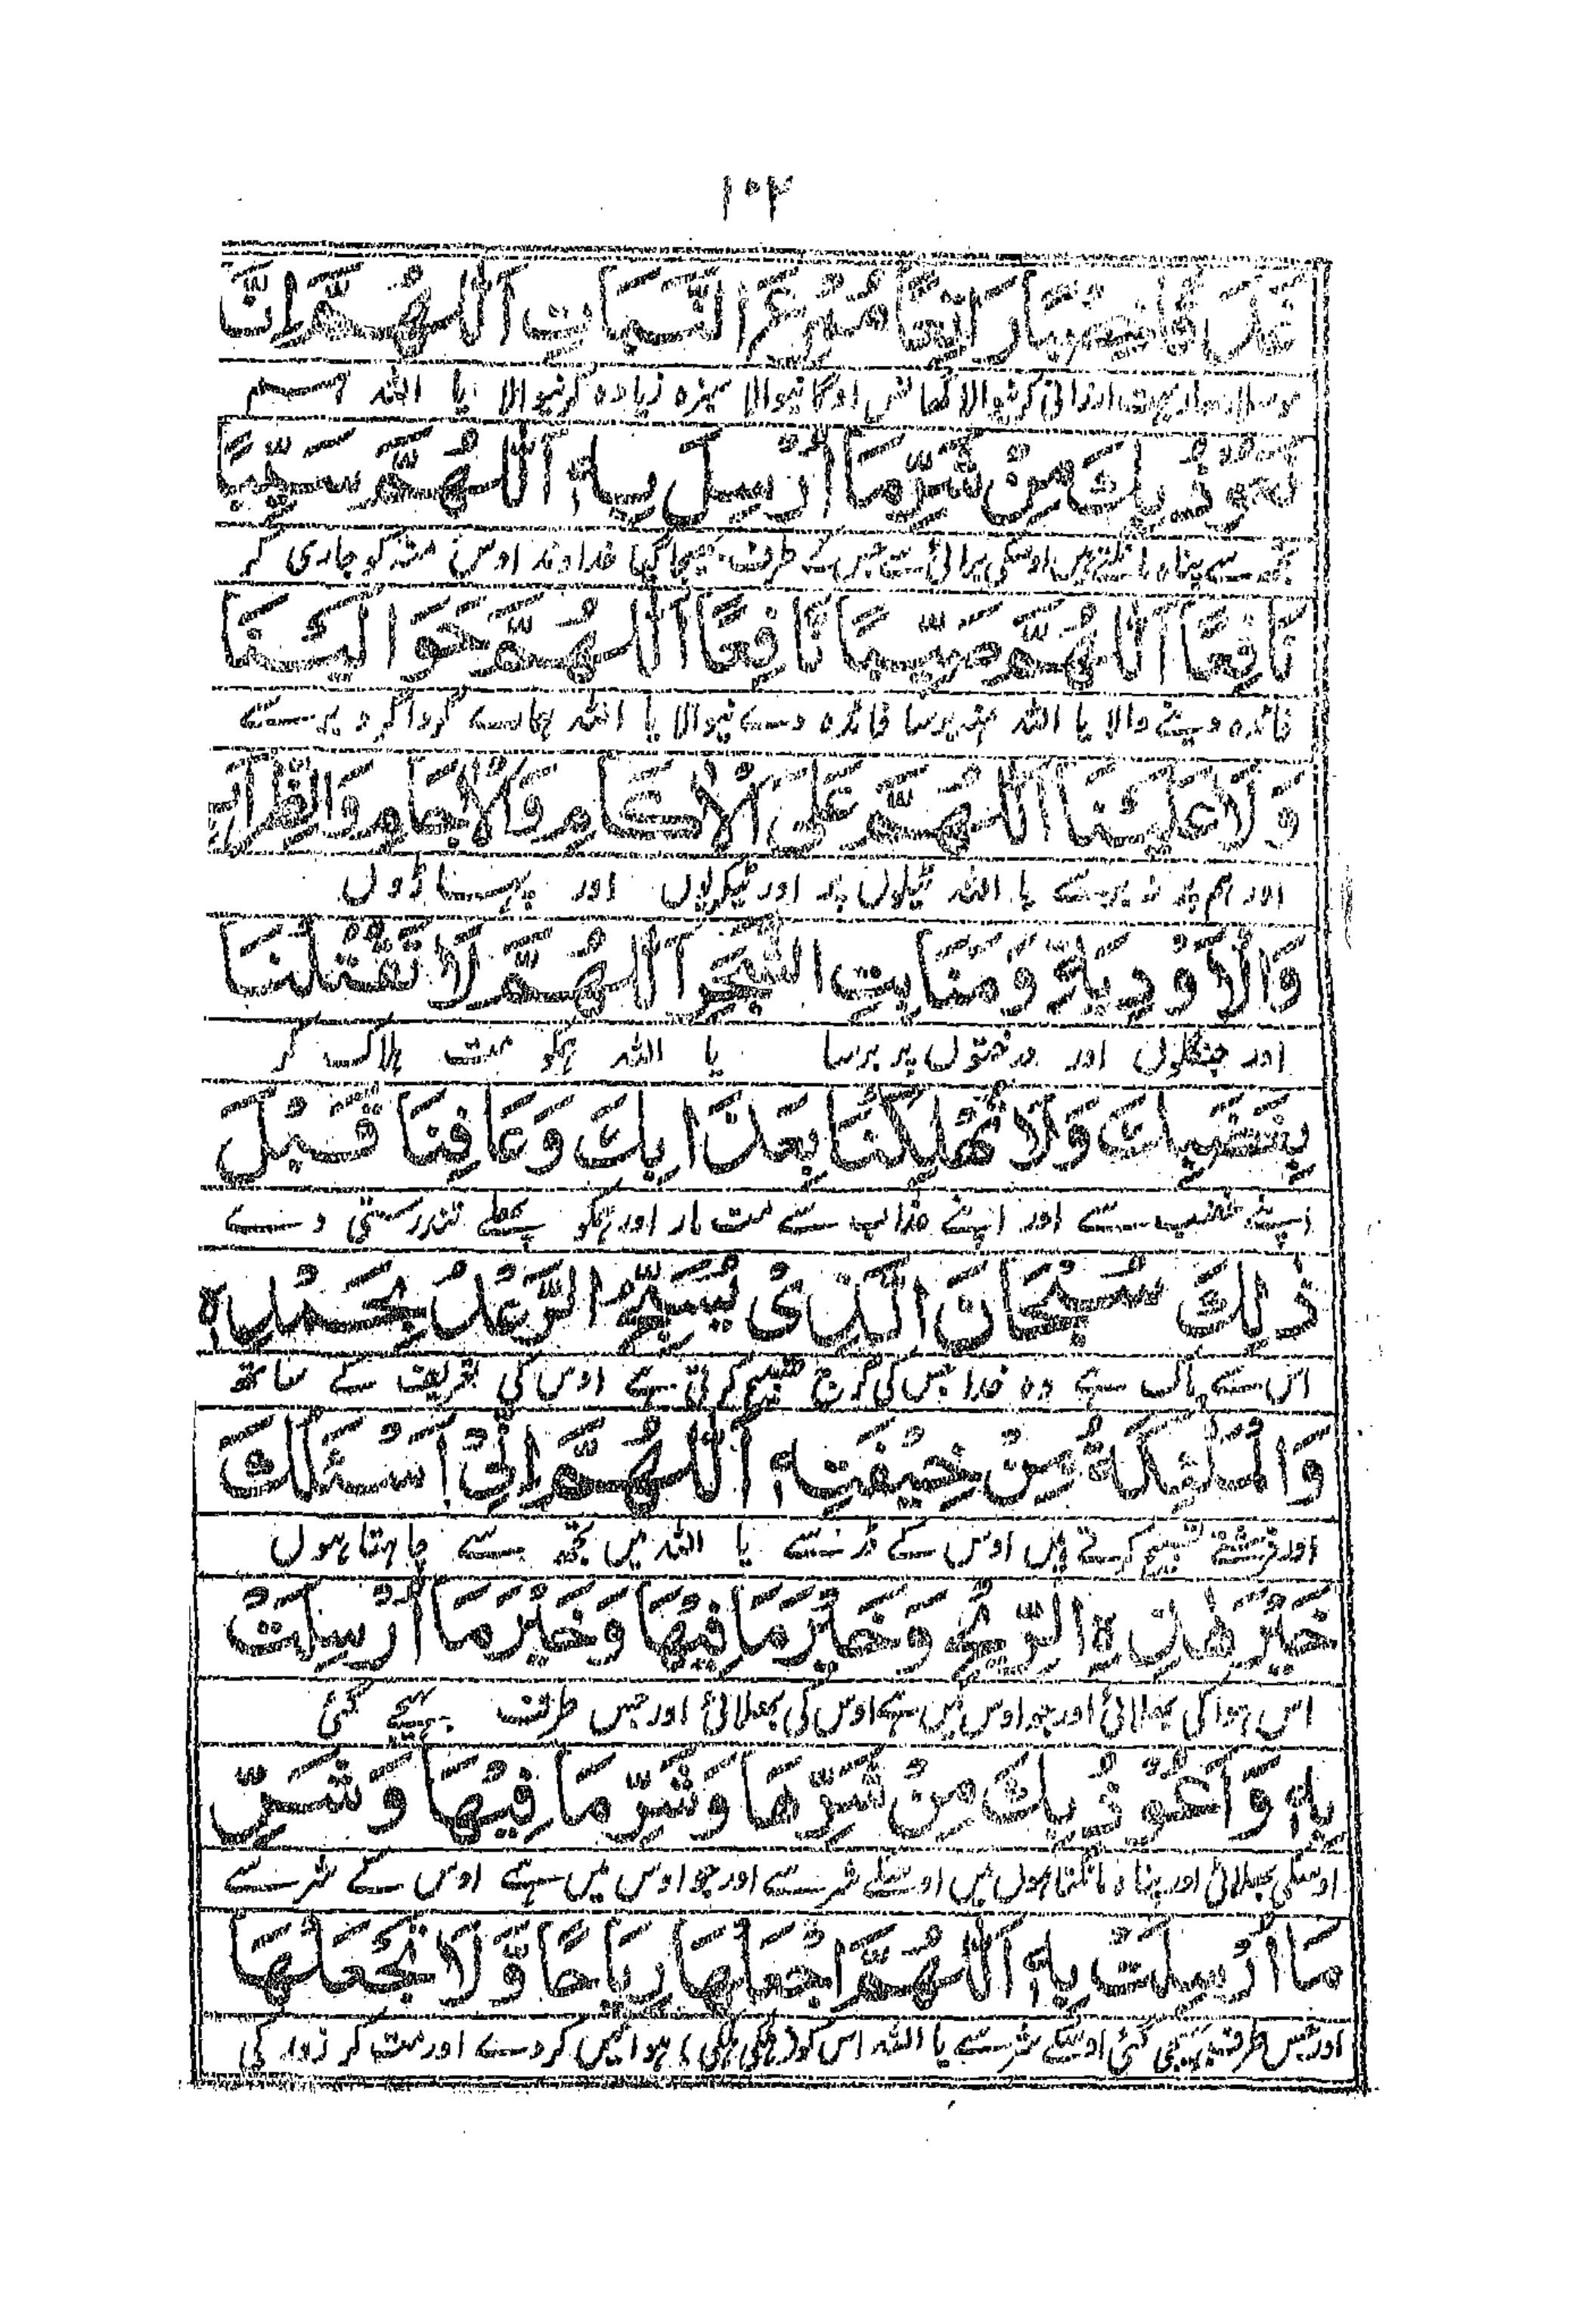 ۱۰۴
غَدَقًا خَصِبًا رَاتِعًا مُمْرِعَ النَّبَاتِ اَللّٰهُمَّ اِنَّا
بہت ارزانی کرنیوالا گھانس اوگانیوالا سبزہ زیادہ کرنیوالا یا اللہ ہم
نَعُوْذُ بِكَ مِنْ شَرِّ مَا اُرْسِلَ بِهٖ اَللّٰهُمَّ سَيِّبًا
تجھ سے پناہ مانگتے ہیں اوسکی برائی سے جس کے طرف بھیجا گیا خداوند اوس منہ کو جاری کر
نَافِعًا اَللّٰهُمَّ صَيِّبًا نَافِعًا اَللّٰهُمَّ حَوَالَيْنَا
فائدہ دینے والا یا اللہ منہ برسا فائدہ دسے نیوالا یا اللہ ہمارے گردا گرد برسے
وَلَا عَلَيْنَا اَللّٰهُمَّ عَلَى الْاٰكَامِ وَالْاٰجَامِ وَالظِّرَابِ
اور ہم پر نہ برسے یا اللہ ٹیلوں پر اور ٹیکریوں اور پہاڑوں
وَالْاَوْدِيَةِ وَمَنَابِتِ الشَّجَرِ اَللّٰهُمَّ لَا تَقْتُلْنَا
اور جنگلوں اور درختوں پر برسا یا اللہ ہمکو مت ہلاک کر
بِغَضَبِكَ وَلَا تُهْلِكْنَا بِعَذَابِكَ وَعَافِنَا قَبْلَ
اپنے غضب سے اور اپنے عذاب سے مت مار اور ہمکو پہلے تندرستی دے
ذٰلِكَ سُبْحَانَ الَّذِىْ يُسَبِّحُ الرَّعْدُ بِحَمْدِهٖ
اس سے پاک ہے وہ خدا جس کی گرج تسبیح کرتی ہے اوس کی تعریف کے ساتھ
وَالْمَلٰٓئِكَةُ مِنْ خِيْفَتِهٖ اَللّٰهُمَّ اِنِّىْ اَسْئَلُكَ
اور فرشتے تسبیح کرتے ہیں اوس کے ڈر سے یا اللہ میں تجھ سے چاہتا ہوں
خَيْرَ هٰذِهِ الرِّيْحِ وَخَيْرَ مَا فِيْهَا وَخَيْرَ مَا اُرْسِلَتْ
اس ہوا کی بھلائی اور جو اوس میں ہے اوس کی بھلائی اور جس طرف بھیجے گئی
بِهٖ وَاَعُوْذُ بِكَ مِنْ شَرِّهَا وَشَرِّ مَا فِيْهَا وَشَرِّ
اوسکی بھلائی اور پناہ مانگتا ہوں میں اوسکے شر سے اور جو اوس میں ہے اوس کے شر سے
مَا اُرْسِلَتْ بِهٖ اَللّٰهُمَّ اجْعَلْهَا رِيَاحًا وَّلَا تَجْعَلْهَا
اور جس طرف بھیجی گئی اوسکے شر سے یا اللہ اس کو (ہلکی ہلکی) ہوائیں کر دے اور مت کر زور کی